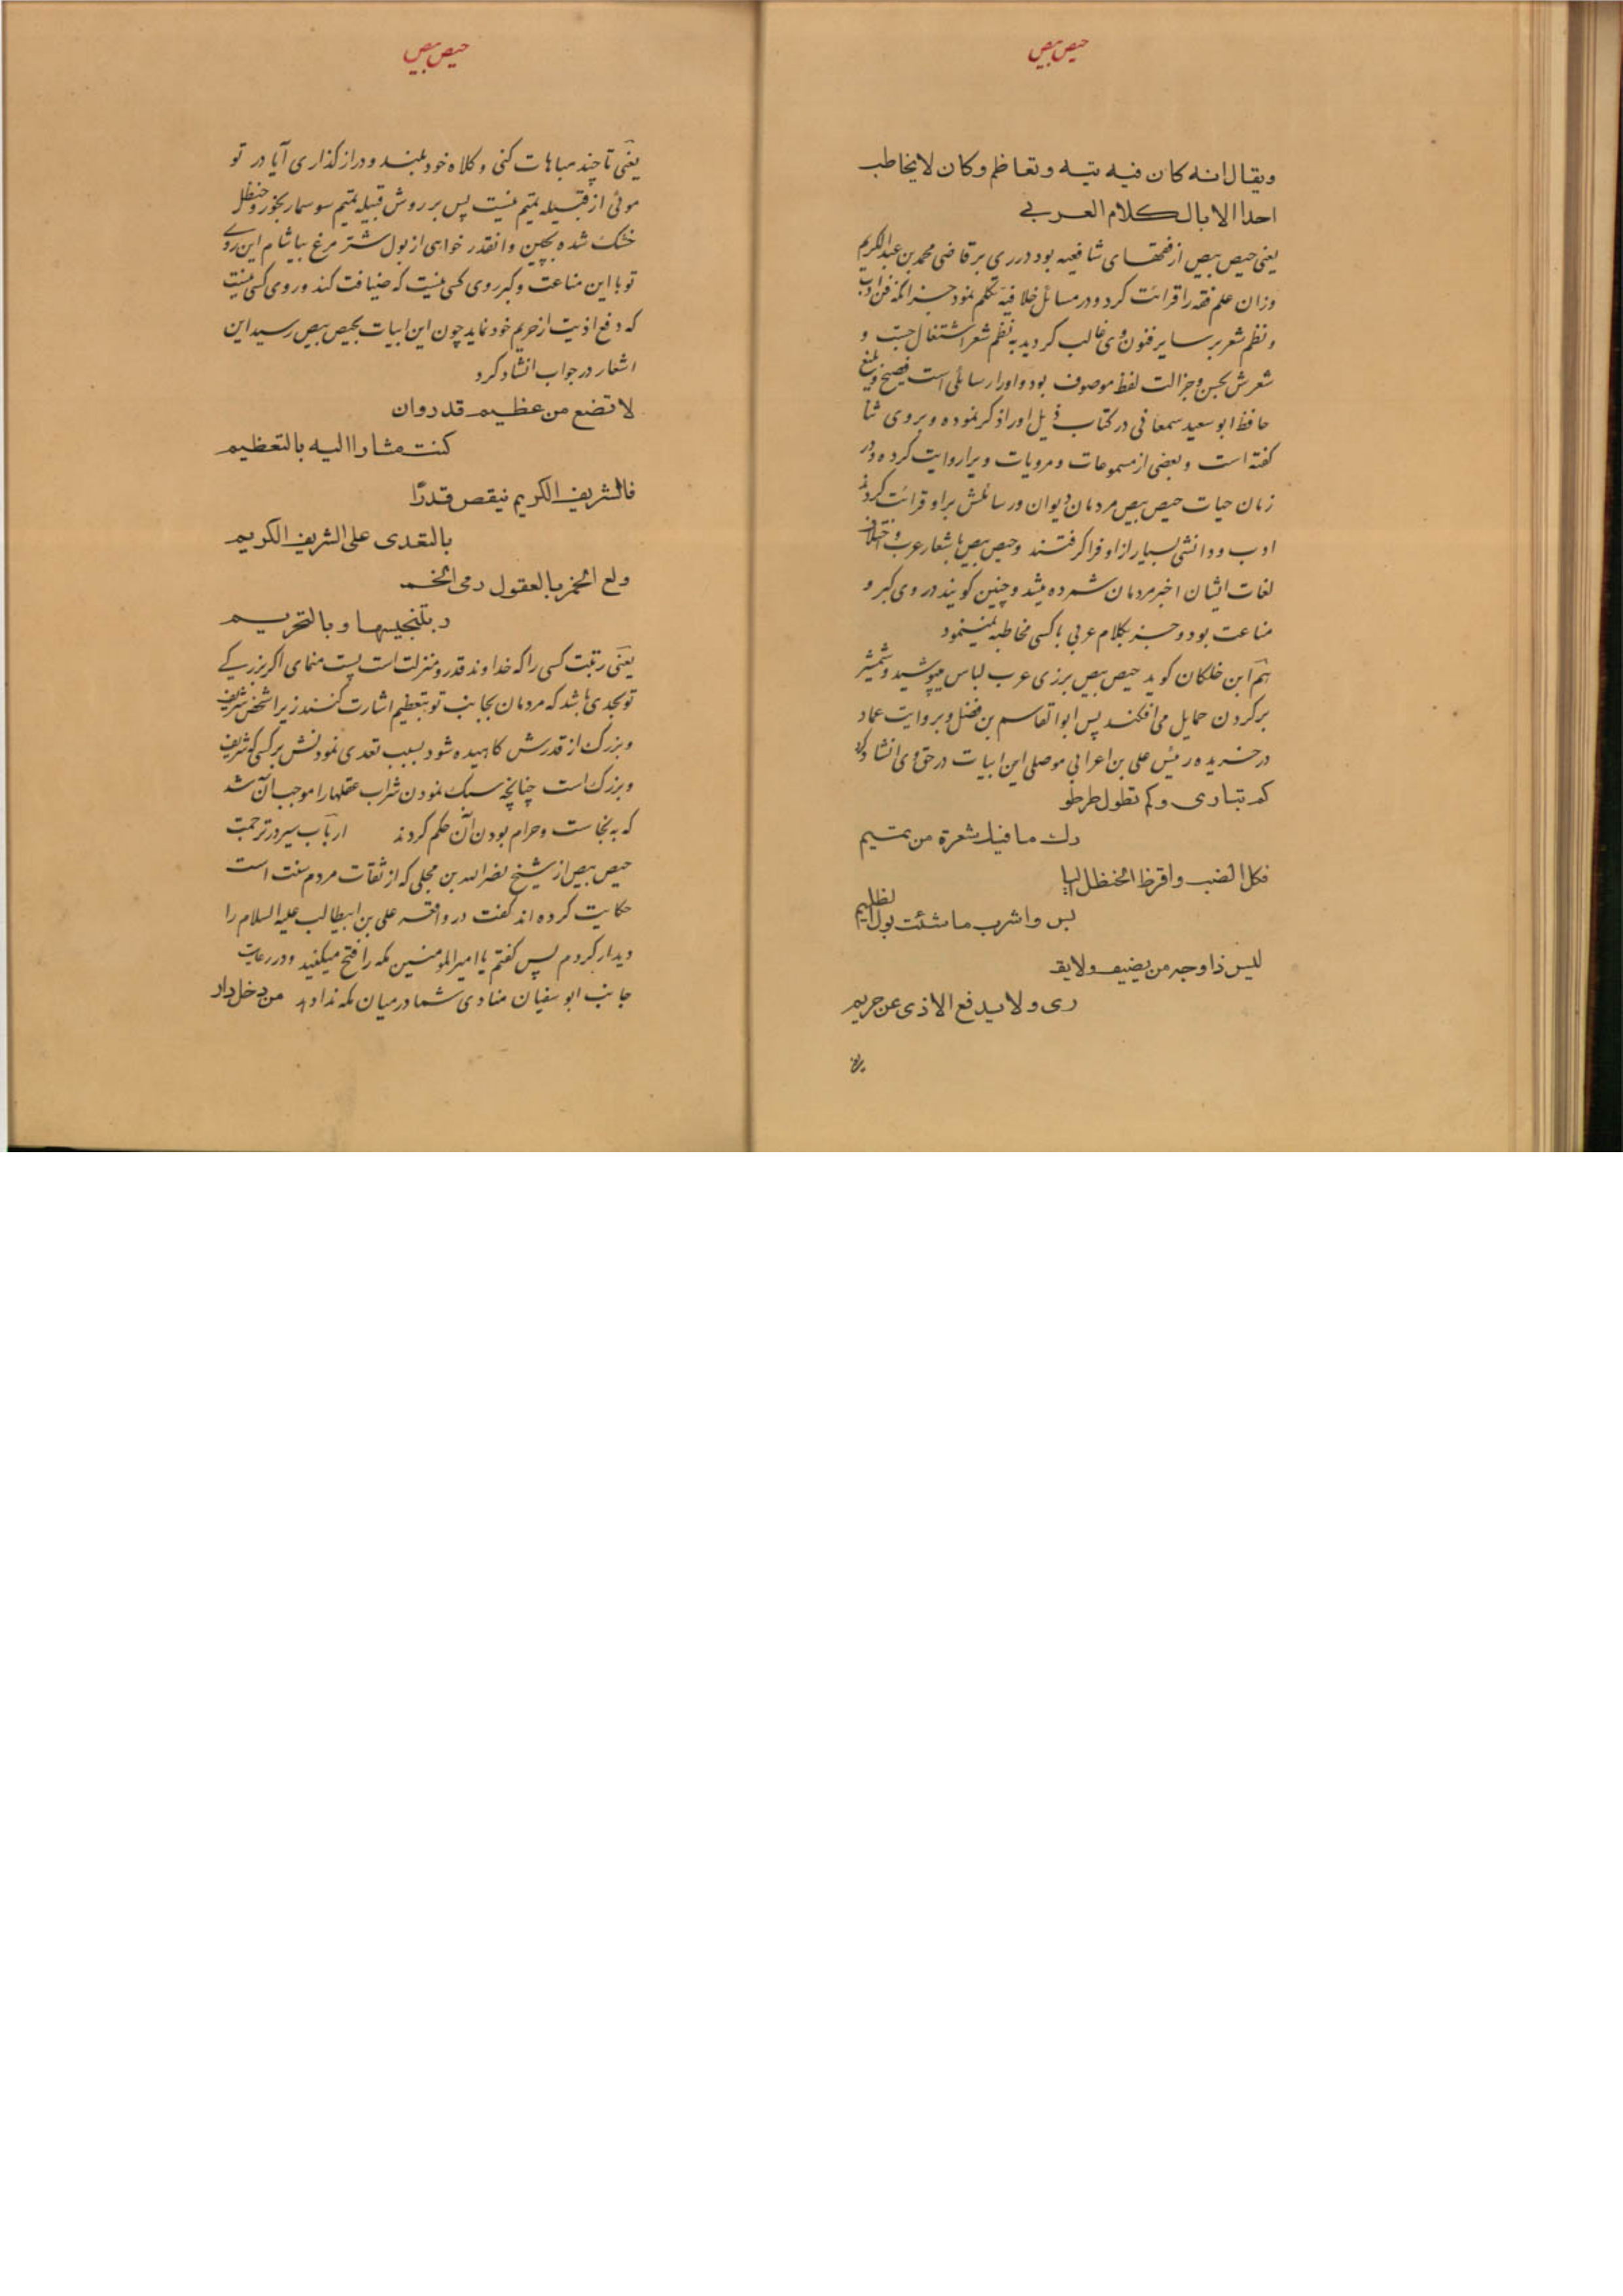 حیص بیص
ویقال انه کان فیه تیه وتعاظم وکان لایخاطب
احدا الا بالکلام العربی
یعنی حیص بیص از فقهای شافعیه بود در ری بر قاضی محمد بن عبدالکریم
وزان علم فقه را قرائت کرد و در مسائل خلافیه تکلم نمود جز آنکه فن ادب
و نظم شعر بر سایر فنون وی غالب کردید به نظم شعر اشتغال جست و
شعرش بحسن و جزالت لفظ موصوف بود و او را رسائلی است فصیح و بلیغ
حافظ ابو سعید سمعانی در کتاب ذیل او را ذکر نموده و بروی ثنا
کفته است و بعضی از مسموعات و مرویات ویرا روایت کرده و در
زمان حیات حیص بیص مردمان دیوان و رسائلش بر او قرائت کردند
ادب و دانشی بسیار از او فرا کرفتند و حیص بیص باشعار عرب و اختلاف
لغات ایشان اخبر مردمان شمرده میشد و چنین کویند در وی کبر و
مناعت بود و جز بکلام عربی با کسی مخاطبه نمینمود
هم ابن خلکان کوید حیص بیص بر زی عرب لباس میپوشید و شمشیر
بر کردن حمایل می افکند پس ابو القاسم بن فضل و بروایت عماد
در خریده رئیس علی بن اعرابی موصلی این ابیات در حق وی انشاد کرد
کم تبادی وکم تطول طرطو
رك ما فیك شعرة من تمیم
فکل الضب واقرظ الحنظل الیا
بس واشرب ما شئت بول الظلیم
لیس ذا وجه من یضیف ولا یقـ
ری ولا یدفع الاذی عن حریم
حیص بیص
یعنی تا چند مباهات کنی و کلاه خود بلند و دراز کذاری آیا در تو
موئی از قبیله تمیم نیست پس بر روش قبیله تمیم سوسمار بخور و حنظل
خشک شده بچین و انقدر خواهی از بول شتر مرغ بیاشام این روی
تو با این مناعت و کبر روی کسی نیست که ضیافت کند و روی کسی نیست
که دفع اذیت از حریم خود نماید چون این ابیات بحیص بیص رسید این
اشعار در جواب انشاد کرد
لا تضع من عظیم قدر وان
کنت مشارا الیه بالتعظیم
فالشریف الکریم ینقص قدرًا
بالتعدی علی الشریف الکریم
ولع الخمر بالعقول رمی الخمـ
ر بتنجیسها وبالتحریم
یعنی رتبت کسی را که خداوند قدر و منزلت است پست منمای اکر بزرکی
تو بحدی باشد که مردمان بجانب تو بتعظیم اشارت کنند زیرا شخص شریف
و بزرک از قدرش کاهیده شود بسبب تعدی نمودنش بر کسی که شریف
و بزرک است چنانچه سبک نمودن شراب عقلها را موجب آن شد
که به نجاست و حرام بودن آن حکم کردند ارباب سیر در ترجمت
حیص بیص از شیخ نصرالله بن مجلی که از ثقات مردم سنت است
حکایت کرده اند کفت در واقعه علی بن ابیطالب علیه السلام را
دیدار کردم پس کفتم یا امیرالمومنین مکه را فتح میکنید و در رعایت
جانب ابو سفیان منادی شما در میان مکه ندا دهد من دخل دار